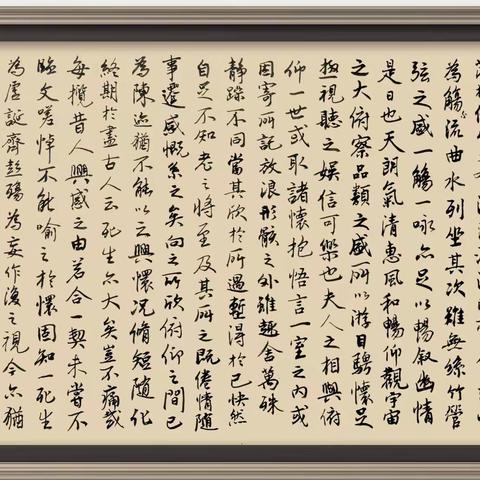 為觴流曲水列坐其次雖無絲竹管
弦之盛一觴一詠亦足以暢叙幽情
是日也天朗氣清惠風和暢仰觀宇宙
之大俯察品類之盛所以游目騁懷足
極視聽之娛信可樂也夫人之相與俯
仰一世或取諸懷抱悟言一室之內或
因寄所託放浪形骸之外雖趣舍萬殊
静躁不同當其欣於所遇暫得於己快然
自足不知老之將至及其所之既倦情隨
事遷感慨系之矣向之所欣俯仰之間已
為陳迹猶不能以之興懷况脩短隨化
終期於盡古人云死生亦大矣豈不痛哉
每攬昔人興感之由若合一契未嘗不
臨文嗟悼不能喻之於懷固知一死生
為虛誕齊彭殤為妄作後之視今亦猶